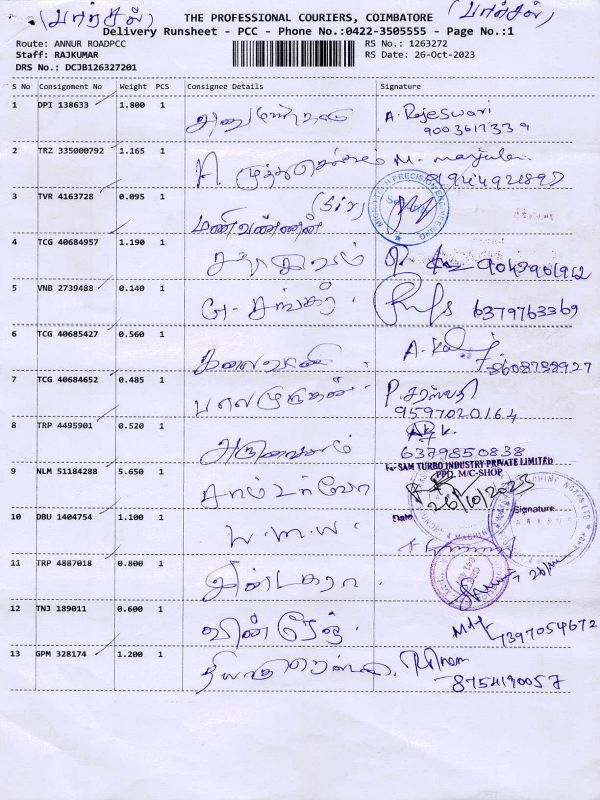 (பார்சல்)
THE PROFESSIONAL COURIERS, COIMBATORE
(பார்சல்)
Delivery Runsheet - PCC - Phone No.:0422-3505555 - Page No.:1
Route: ANNUR ROADPCC
RS No.: 1263272
Staff: RAJKUMAR
RS Date: 26-Oct-2023
DRS No.: DCJB126327201
S No Consignment No Weight PCS Consignee Details Signature
1 DPI 138633 1.800 1 A. Rajeswari
2 TRZ 335000792 1.165 1 A M. manjula
(Sir)
3 TVR 4163728 0.095 1 மணிவண்ணன்
4 TCG 40684957 1.190 1 சதாசிவம் 9043901912
5 VNB 2739488 0.140 1 G- சங்கர். 6379763369
6 TCG 40685427 0.560 1 கலைவாணி
8608738927
7 TCG 40684652 0.485 1 பாலமுருகன். P. சரஸ்வதி
9597020164
8 TRP 4495901 0.520 1 அருணாசலம்
6379850838
For SAM TURBO INDUSTRY PRIVATE LIMITED
PPD. M/C-SHOP
9 NLM 51184288 5.650 1 சாம்டர்போ 26/10/2023
Date Signature
10 DBU 1404754 1.100 1 W.M.W.
11 TRP 4887018 0.800 1
12 TNJ 189011 0.600 1
7397054672
13 GPM 328174 1.200 1
8754190057